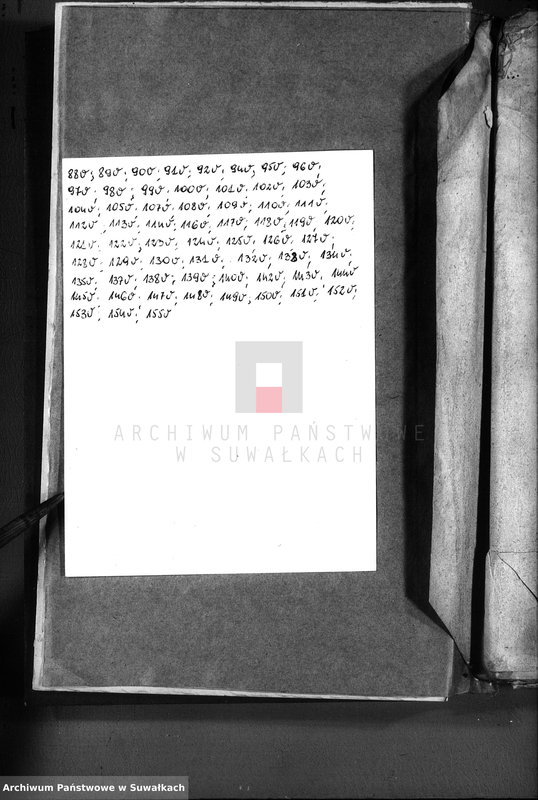 88v; 89v; 90v; 91v; 92v; 94v; 95v; 96v;
97v; 98v; 99v; 100v; 101v; 102v; 103v;
104v; 105v; 107v; 108v; 109v; 110v; 111v;
112v; 113v; 114v; 116v; 117v; 118v; 119v; 120v;
121v; 122v; 123v; 124v; 125v; 126v; 127v;
128v; 129v; 130v; 131v; 132v; 133v; 134v;
135v; 137v; 138v; 139v; 140v; 142v; 143v; 144v
145v; 146v; 147v; 148v; 149v; 150v; 151v; 152v;
153v; 154v; 155v
ARCHIWUM PAŃSTWOWE
W SUWAŁKACH
Archiwum Państwowe w Suwałkach